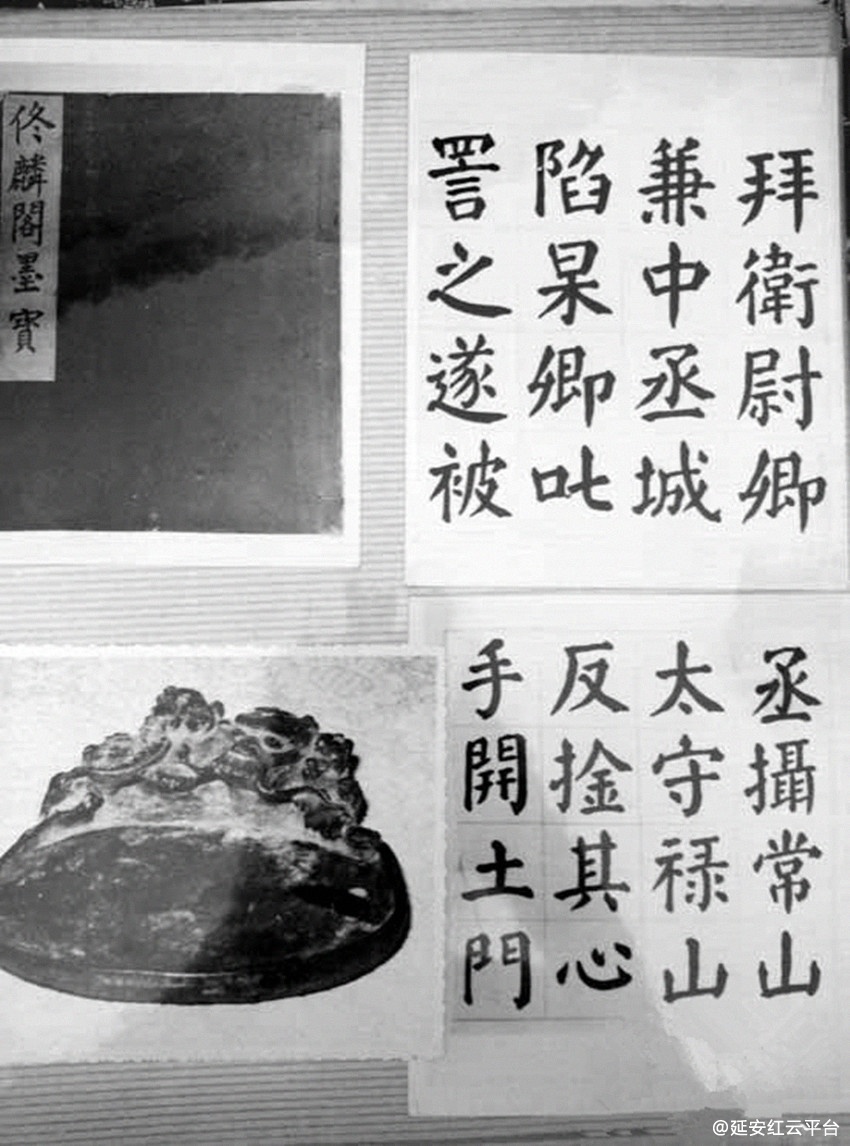 佟麟閣墨寶
拜衛尉卿
兼中丞城
陷杲卿叱
詈之遂被
丞攝常山
太守禄山
反捦其心
手開土門
@延安红云平台